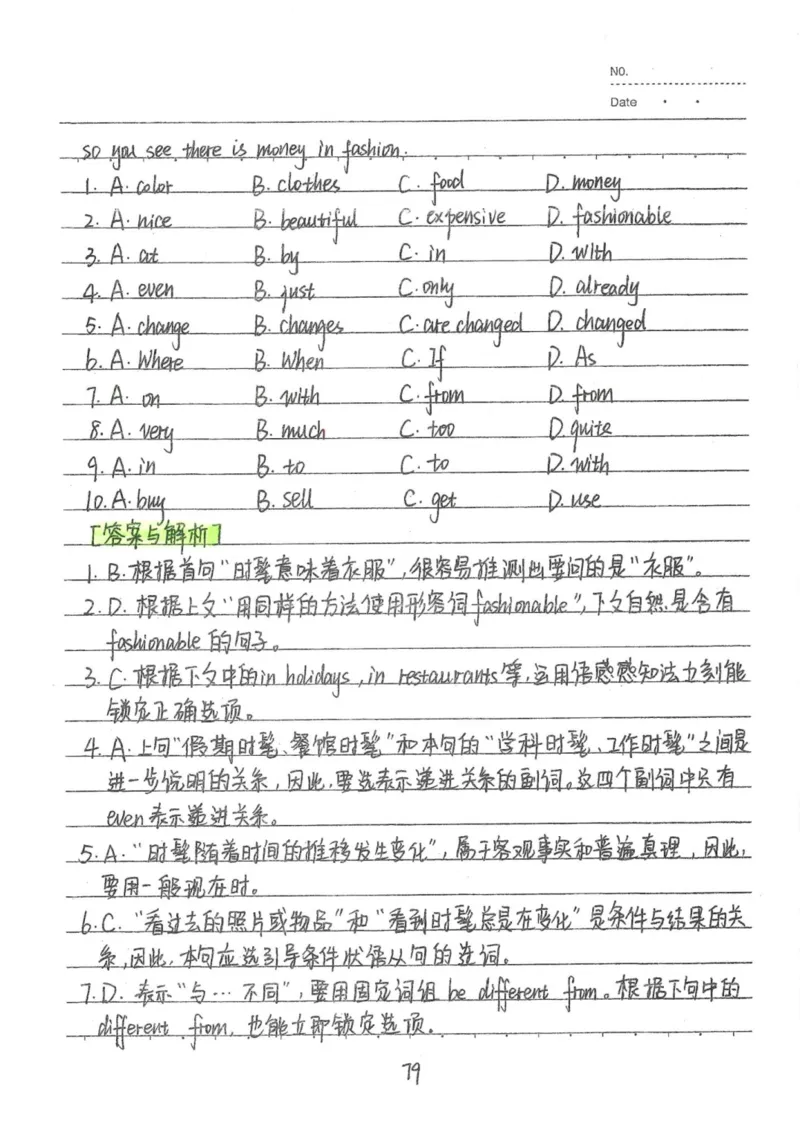 NO.
Date
so you see there is money in fashion.
1. A. color B. clothes C. food D. money
2. A. nice B. beautiful C. expensive D. fashionable
3. A. at B. by C. in D. with
4. A. even B. just C. only D. already
5. A. change B. changes C. are changed D. changed
6. A. Where B. When C. If D. As
7. A. on B. with C. from D. from
8. A. very B. much C. too D. quite
9. A. in B. to C. to D. with
10. A. buy B. sell C. get D. use
[答案与解析]
1. B. 根据首句“时髦意味着衣服”,很容易推测出要问的是“衣服”。
2. D. 根据上文“用同样的方法使用形容词fashionable”,下文自然是含有
fashionable 的句子。
3. C. 根据下文中的in holidays, in restaurants等,运用语感感知法立刻能
锁定正确选项。
4. A. 上句“假期时髦、餐馆时髦”和本句的“学科时髦、工作时髦”之间是
进一步说明的关系,因此,要选表示递进关系的副词。这四个副词中只有
even 表示递进关系。
5. A. “时髦随着时间的推移发生变化”,属于客观事实和普遍真理,因此,
要用一般现在时。
6. C. “看过去的照片或物品”和“看到时髦总是在变化”是条件与结果的关
系,因此,本句应选引导条件状语从句的连词。
7. D. 表示“与…不同”,要用固定词组 be different from。根据下句中的
different from, 也能立即锁定选项.
79